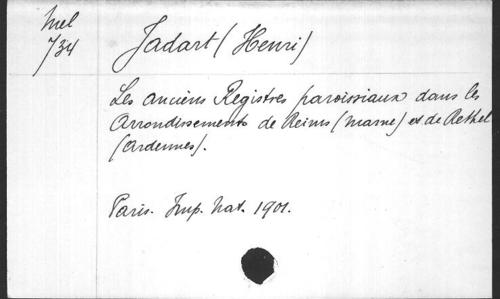 Mel
734
Jadart (Henri)
Les anciens Registres paroissiaux dans les
Arrondissements de Reims (Marne) et de Rethel
(Ardennes).
Paris. Imp. Nat. 1901.